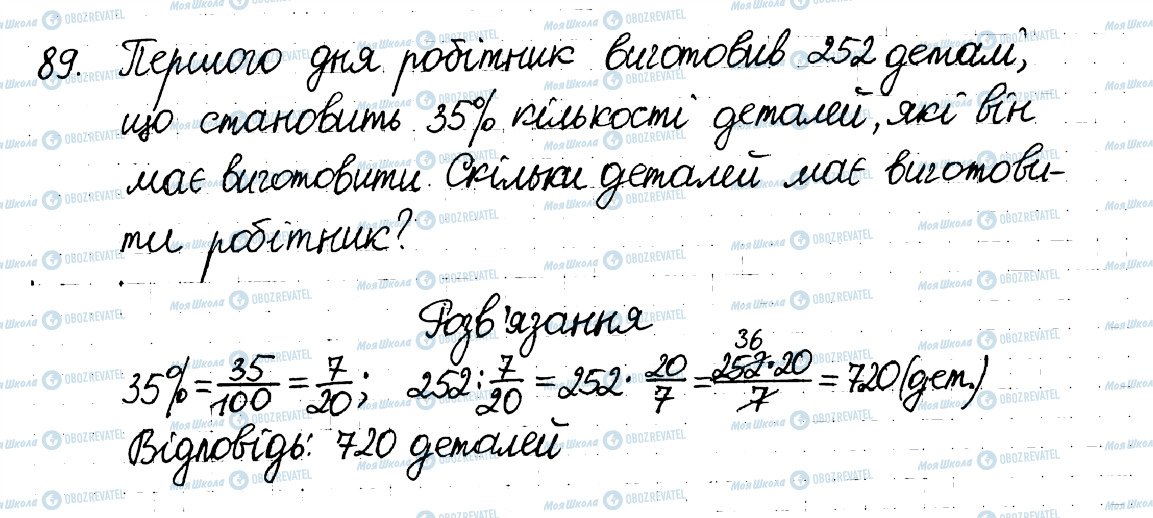 89. Першого дня робітник виготовив 252 деталі,
що становить 35% кількості деталей, які він
має виготовити. Скільки деталей має виготови-
ти робітник?
Розв'язання
35% = 35/100 = 7/20; 252 : 7/20 = 252 · 20/7 = 252 · 20/7 = 720 (дет.)
36
Відповідь: 720 деталей
МояШкола OBOZREVATEL